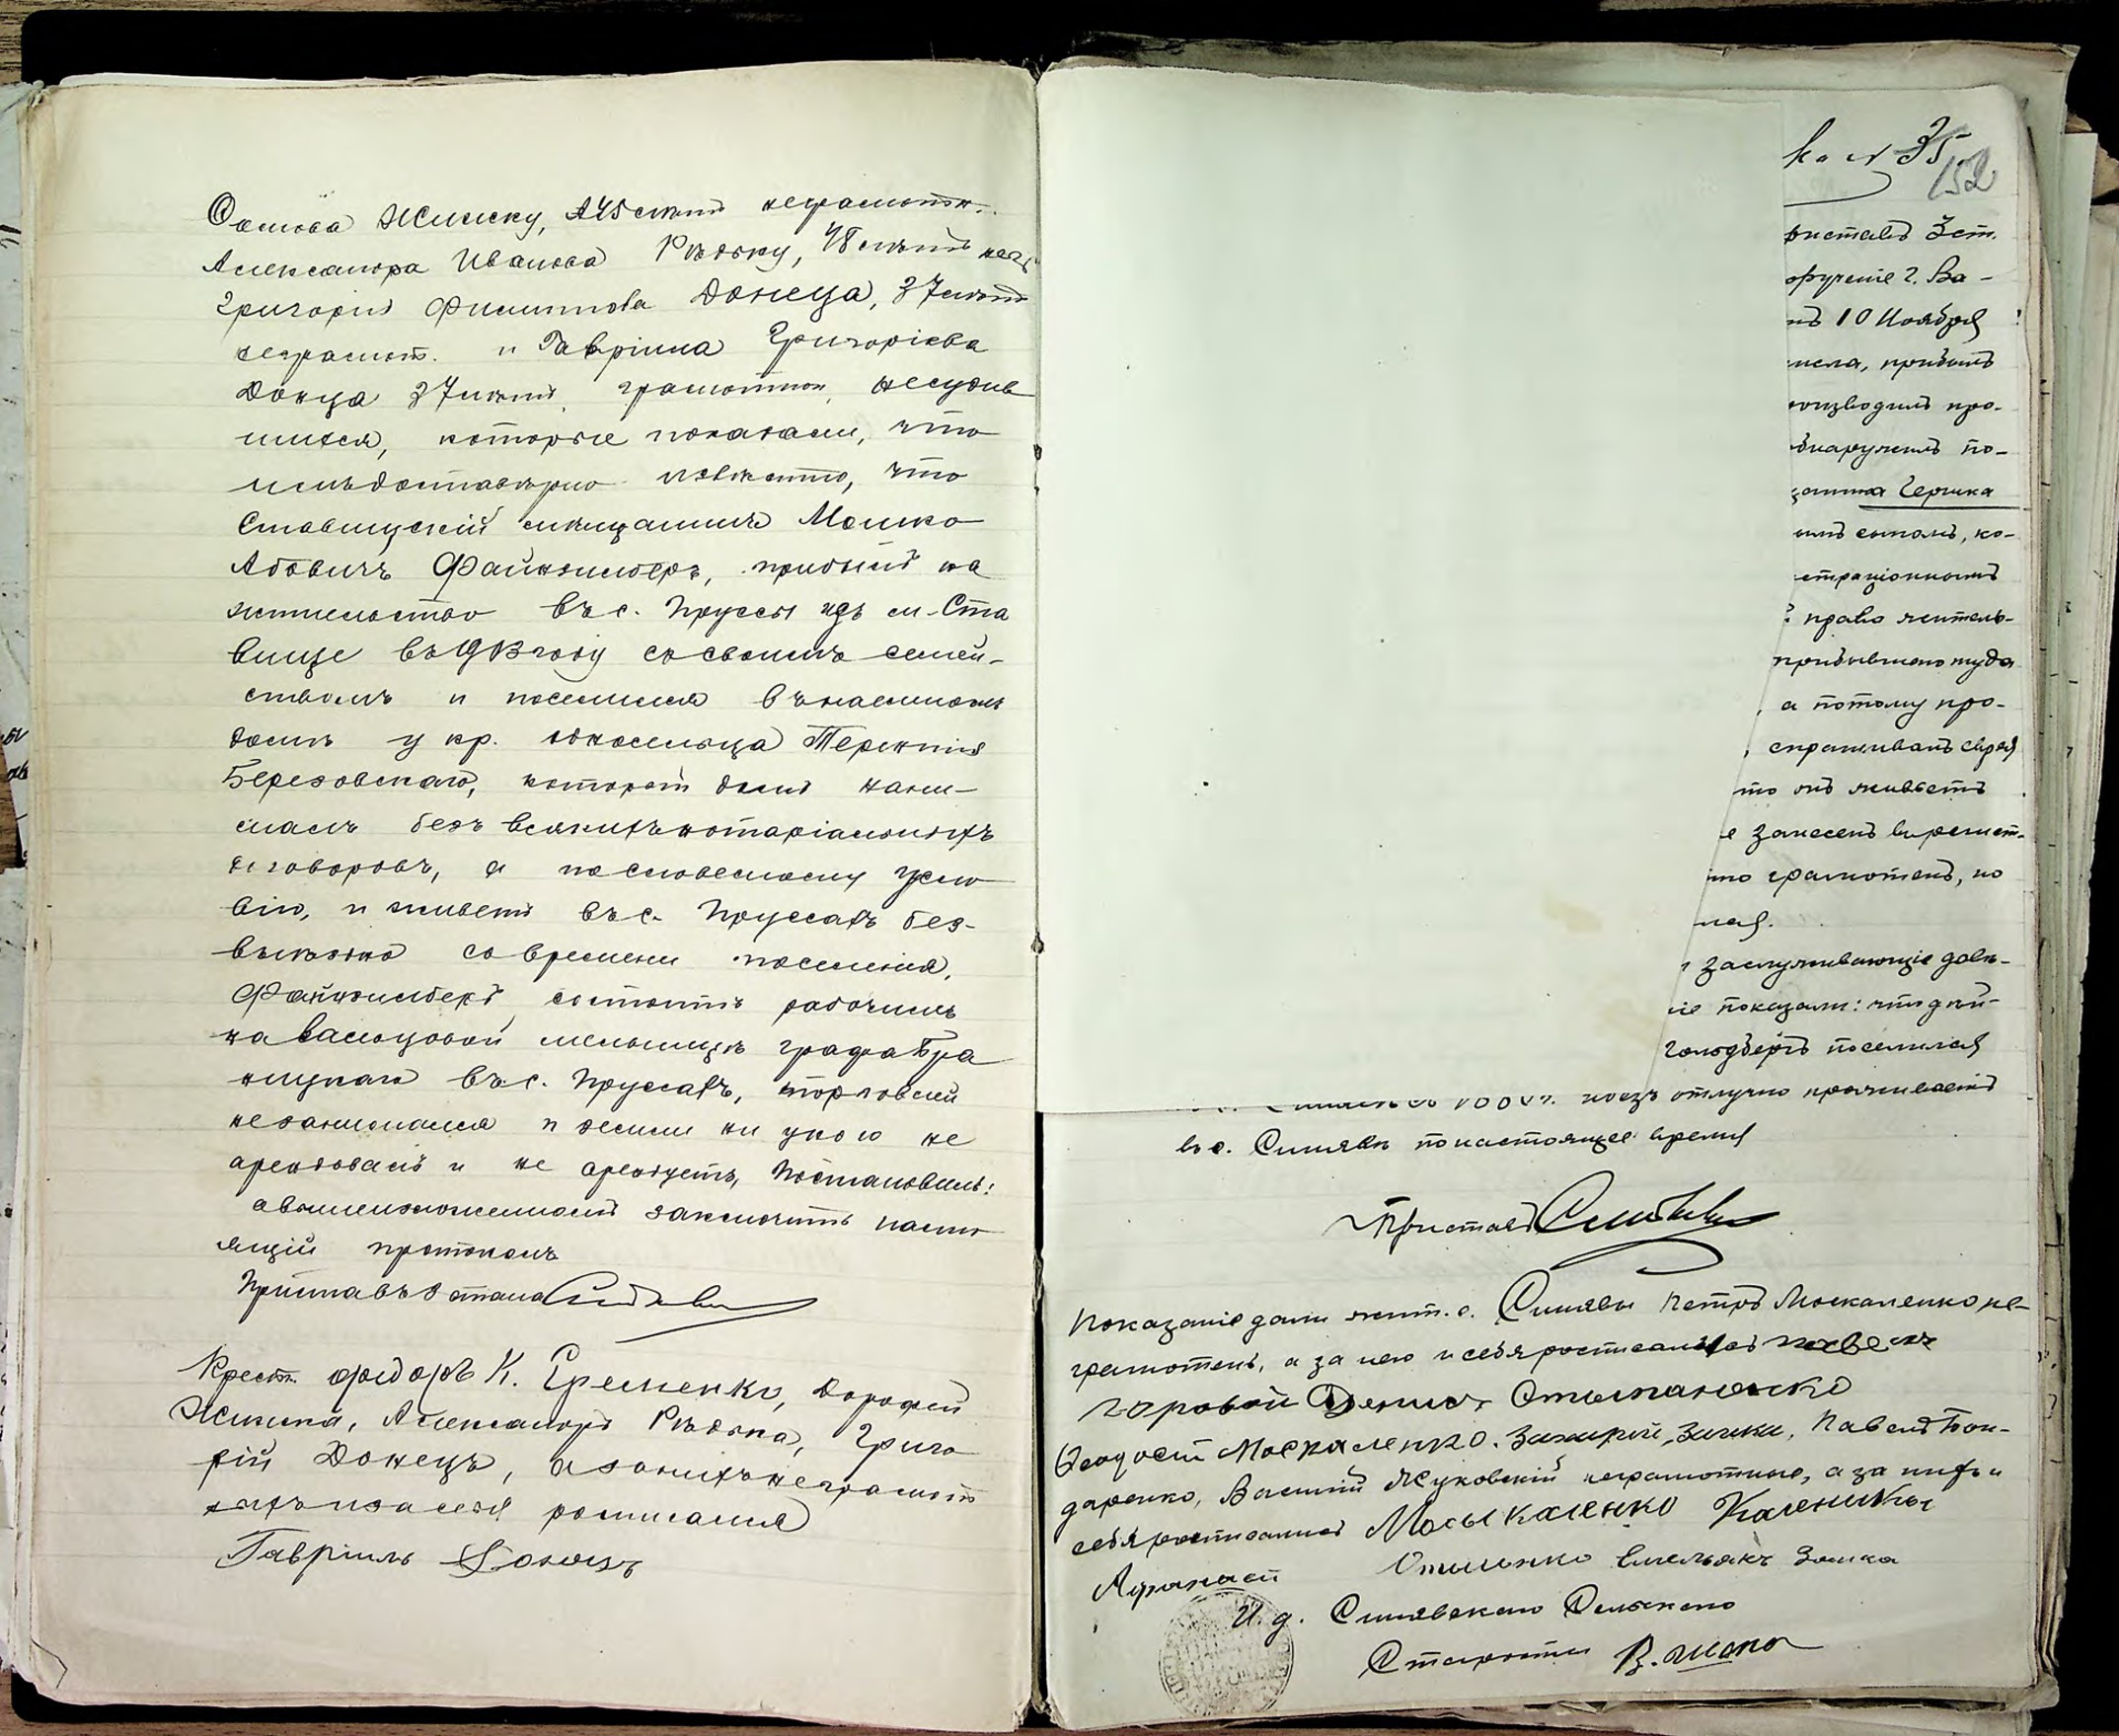 Ѳомова Жмиску, 45 лѣтъ неграмотн.
Александра Иванова Рѣдьку, 48 лѣтъ негр
Григорія Филиппова Донеца, 37 лѣтъ
неграмот. и Гавріила Григоріева
Донца 37 лѣтъ, грамотнон, несудив
шихся, которые показали, что
имъ достовѣрно извѣстно, что
Ставищскій мѣщанинъ Мошко
Абовичъ Файнзильберъ, прибылъ на
жительство въ с. Пруссы изъ м. Ста
вище въ 9 году со своимъ семей-
ствомъ и поселился въ наемномъ
домѣ у кр. односельца Терентія
Березовскаго, который домъ нани-
малъ безъ всякихъ нотаріальныхъ
договоровъ, а по словесному усло
вію, и живетъ въ с. Пруссахъ без-
выѣздно со времени поселенія,
Файнзильберъ состоитъ рабочимъ
на вальцовой мельницѣ графа Бра
ницкаго въ с. Пруссахъ, торговлей
не занимался и земли ни у кого не
арендовалъ и не арендуетъ, Постановилъ:
о вышеизложенномъ заключить насто
ящій протоколъ
Приставъ 3 стана
Крест. Фидоръ К. Еременко, Дорофей
Жмиска, Александръ Рѣдька, Григо
рій Донецъ, а за нихъ неграмот
ныхъ и за себя росписался
Гавріилъ Донецъ
к. № 35
152
риставъ 3 ст.
орученіе г. Ва-
нъ 10 Ноября
исла, прибылъ
роизводилъ про-
бнаружилъ по-
щанина Гершка
ымъ сыномъ, ко-
страціонномъ
право житель-
прибывшаго туда
, а потому про-
, спрашивалъ еврея
что онъ живетъ
е занесенъ въ регист-
что грамотенъ, но
лся.
и заслуживающіе довѣ-
іе показали: что дѣй-
Гольдбергъ поселился
безъ отлучно проживаетъ
въ с. Синявѣ по настоящее время
Приставъ
Показаніе дали жит. с. Синявы Петръ Москаленко не-
грамотенъ, а за него и себя росписался
горовой Денисъ
Феодосій Москаленко. Захарій Зинки, Павелъ Бон-
даренко, Василій Жуковскій неграмотные, а за нихъ и
себя росписался Москаленко Каленикъ
Афанасій Емельянъ Зошка
И. д. Синявскаго Сельскаго
Старосты